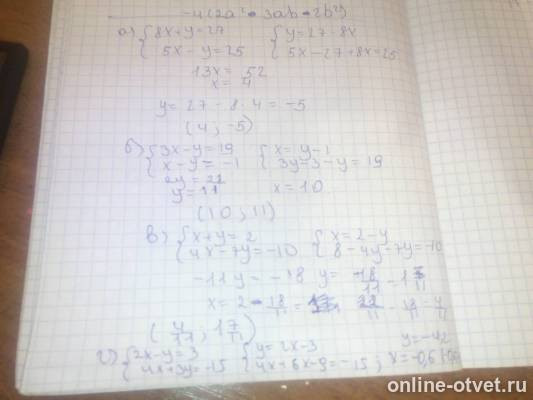 -4(2a² - 3ab - 2b²)
а) {8x+y=27 {y=27-8x
5x-y=25 5x-27+8x=25
13x=52
x=4
y=27-8·4=-5
(4; -5)
б) {3x-y=19 {x=y-1
x-y=-1 3y-3-y=19
2y=22
y=11 x=10
(10; 11)
в) {x+y=2 {x=2-y
4x-7y=-10 8-4y-7y=-10
-11y=-18 y=
x=2-18/11= 22/11 - 18/11 = 4/11
(4/11; 1 7/11)
г) {2x-y=3 {y=2x-3 y=-4,2
4x+3y=-15 4x+6x-9=-15; x=-0,6
online-otvet.ru